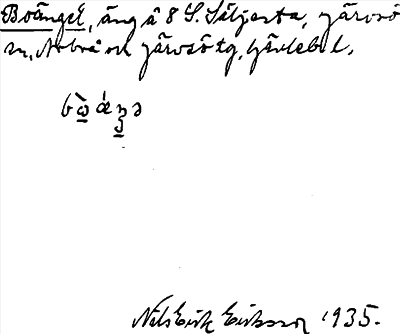 Boänget, äng å 8 S. Säljesta, Järvsö
sn, Arbrå och Järvsö tg, Gävlebg l.
bὼǽŋə
Nils Erik Eriksson 1935.